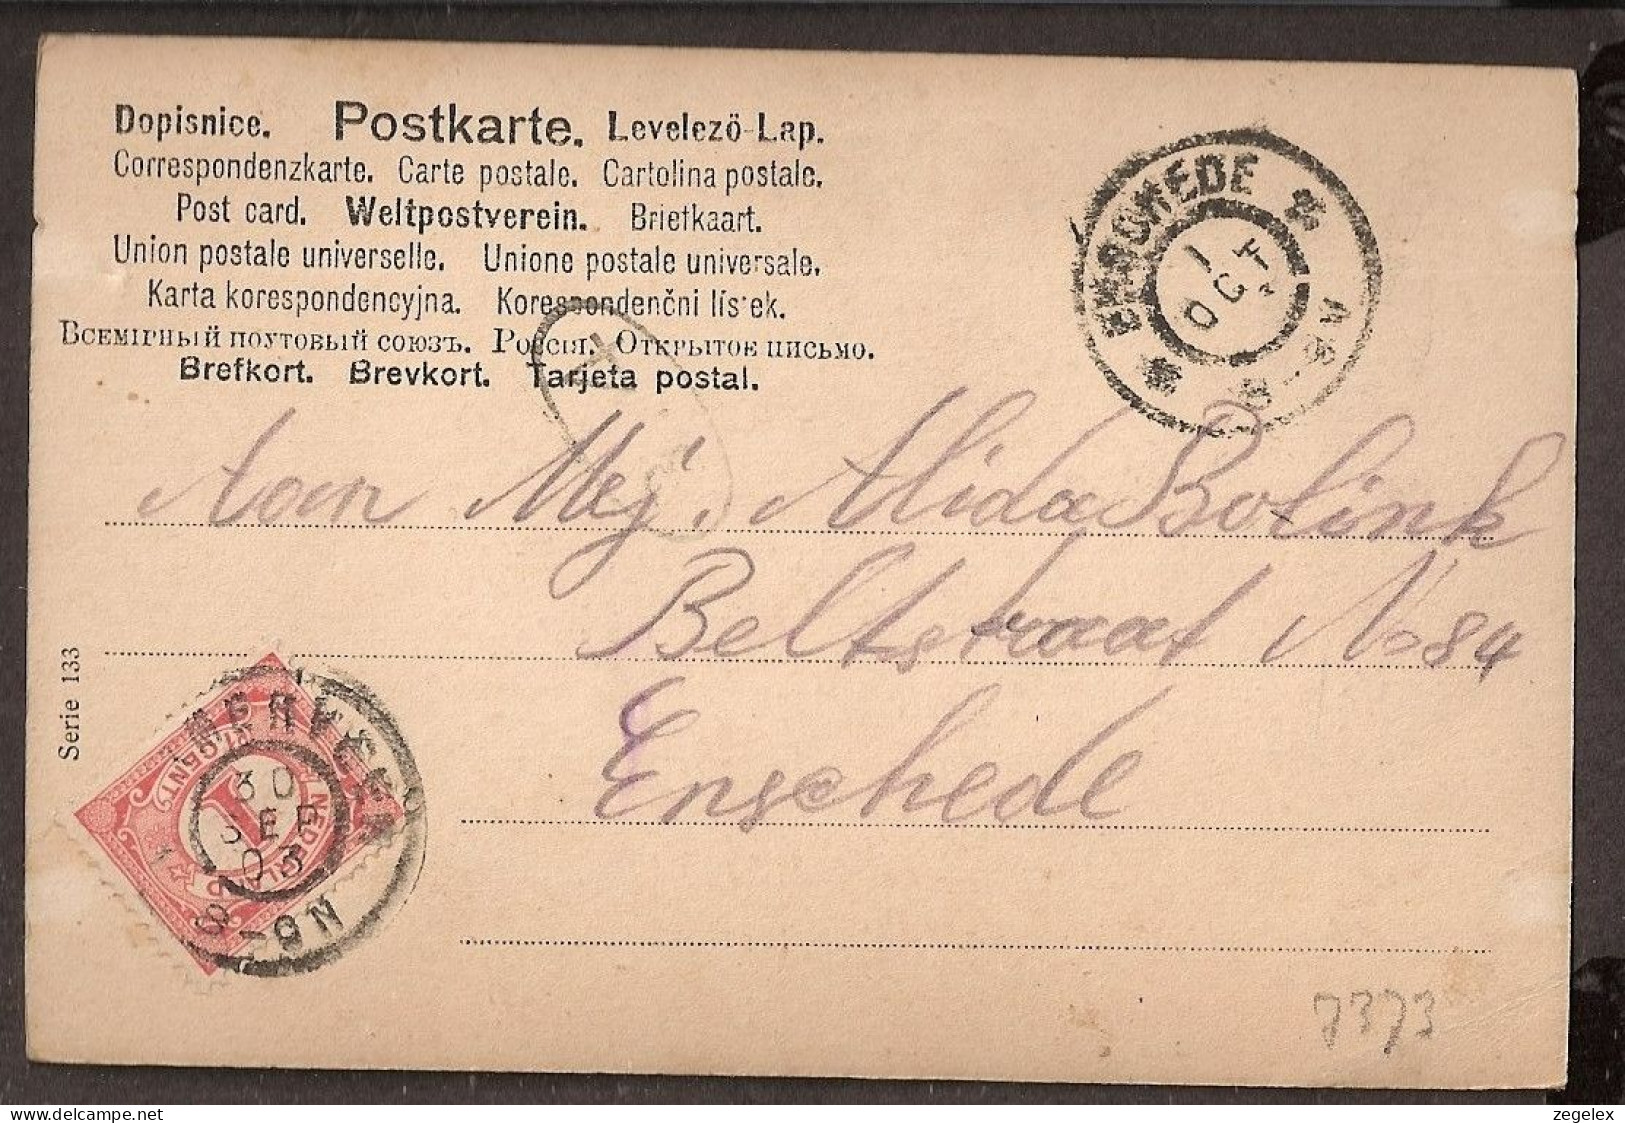 Dopisnice. Postkarte. Levelező-Lap.
Correspondenzkarte. Carte postale. Cartolina postale.
Post card. Weltpostverein. Briefkaart.
Union postale universelle. Unione postale universale.
Karta korespondencyjna. Korespondenční lís ek.
Всемірный почтовый союзъ. Россія. Открытое письмо.
Brefkort. Brevkort. Tarjeta postal.
ENSCHEDE
1 OCT
8-9V
Aan Mej. Alida Bolink
Beltstraat No 84
Enschede
Serie 133
NEDERLAND
1
30
SEP
03
8-9N
7373
zegelex